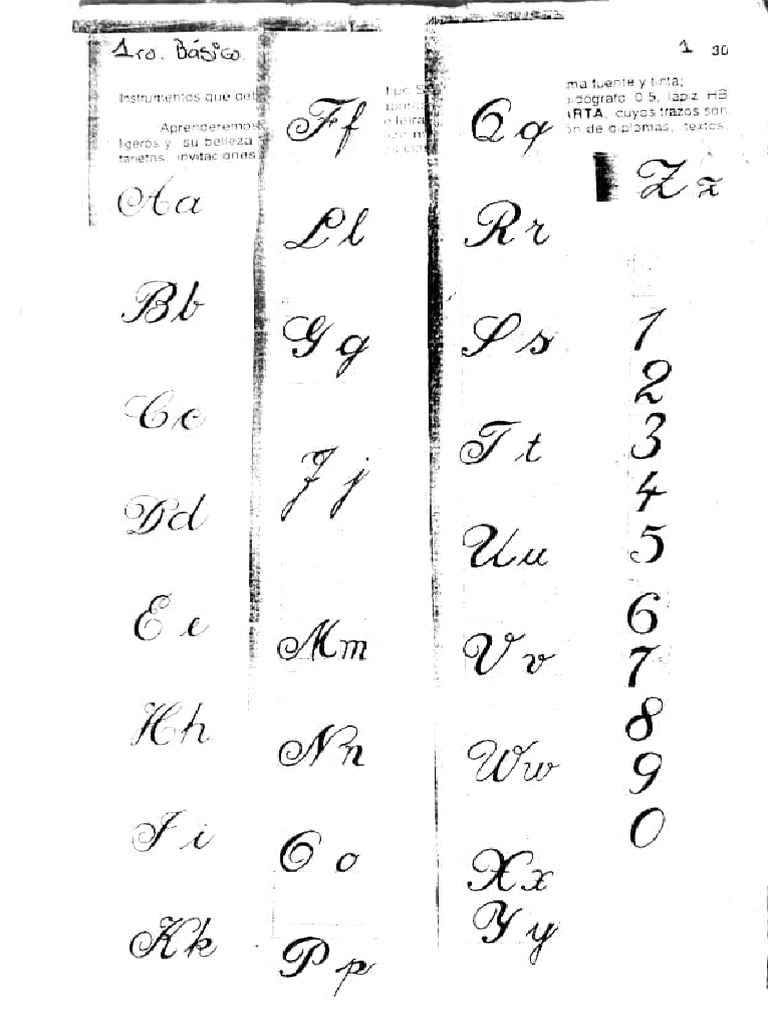 1ro. Básico.
1 30
Instrumentos que
ma fuente y tinta;
0.5, lapiz HB
Aprenderemos
ARTA, cuyos trazos son
ligeros y su belleza
ón de diplomas, textos,
tarjetas, invitaciones
Aa
Bb
Cc
Dd
Ee
Hh
Ii
Kk
Ff
Ll
Gg
Jj
Mm
Nn
Oo
Pp
Qq
Rr
Ss
Tt
Uu
Vv
Ww
Xx
Yy
Zz
1
2
3
4
5
6
7
8
9
0